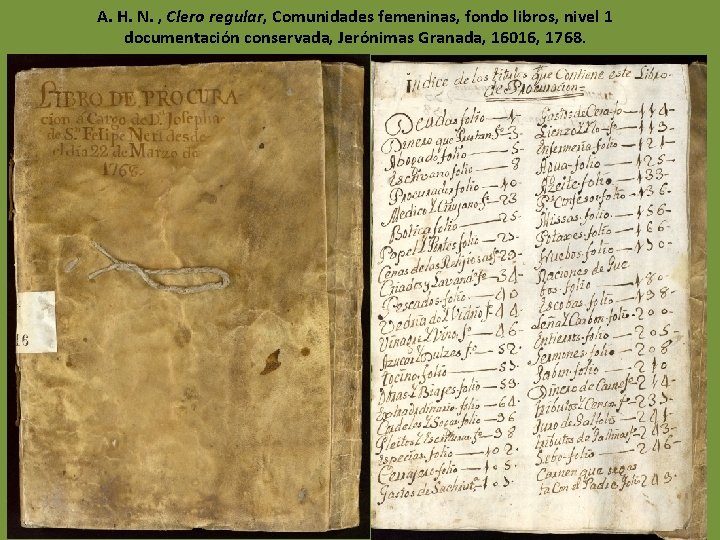 A. H. N. , Clero regular, Comunidades femeninas, fondo libros, nivel 1
documentación conservada, Jerónimas Granada, 16016, 1768.
LIBRO DE PROCURA
cion a Cargo de Dª Josepha
de Sn Felipe Neri desde
el dia 22 de Marzo de
1768.
16
Indice de los titulos que Contiene este Libro
de Procuracion=
Deudas folio — 1
Dinero que Prestan fº 3
Abogado folio — 5
Escrivano folio — 8
Procurador folio — 10
Medico Y Cirujano fº 23
Botica folio — 25
Papel Y Portes fº — 29
Cenas de las Religiosas fº 29
Criados Y Lavandª fº 34
Pescados folio — 40
Vedriado Y Vidrio fº 44
Vinagre Y Vino fº — 46
Azucar Y Dulzes fº — 52
Tocino folio — 53
Obras Y Biajes folio — 59
Extraordinario folio — 64
Candeles Y Sogas folio — 96
Pleitos Y Escrituras fº — 98
Especias folio — 102
Cerrajero folio — 105
Gastos de Sachristª — 103
Gastos de Cera fº — 114
Lienzo Y Hilo fº — 119
Enfermeria folio — 121
Agua folio — 125
Azeite folio — 133
Confesor folio — 136
Missas folio — 156
Potaxes folio — 166
Huebos folio — 170
Raciones de Jue
bes folio — 180
Escobas folio — 198
Leña Y Carbon folio — 200
Entierros folio — 205
Sermones folio — 208
Jabon folio — 210
Dinero de Carne fº 214
tributos Y Censos fº 233
Juro de folio — 241
tributos de Gallinas fº 243
Sebo folio — 246
Carnen que
ta Con el Padre folio 249